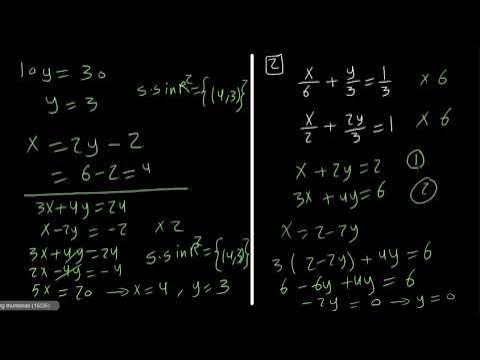 10y = 30
y = 3
S.S in R² = {(4,3)}
x = 2y - 2
= 6 - 2 = 4
3x + 4y = 24
x - 2y = -2 × 2
3x + 4y = 24
2x - 4y = -4
S.S in R² = {(4,3)}
5x = 20 → x = 4 , y = 3
2
x/6 + y/3 = 1/3 × 6
x/2 + 2y/3 = 1 × 6
x + 2y = 2 ①
3x + 4y = 6 ②
x = 2 - 2y
3 ( 2 - 2y ) + 4y = 6
6 - 6y + 4y = 6
-2y = 0 → y = 0